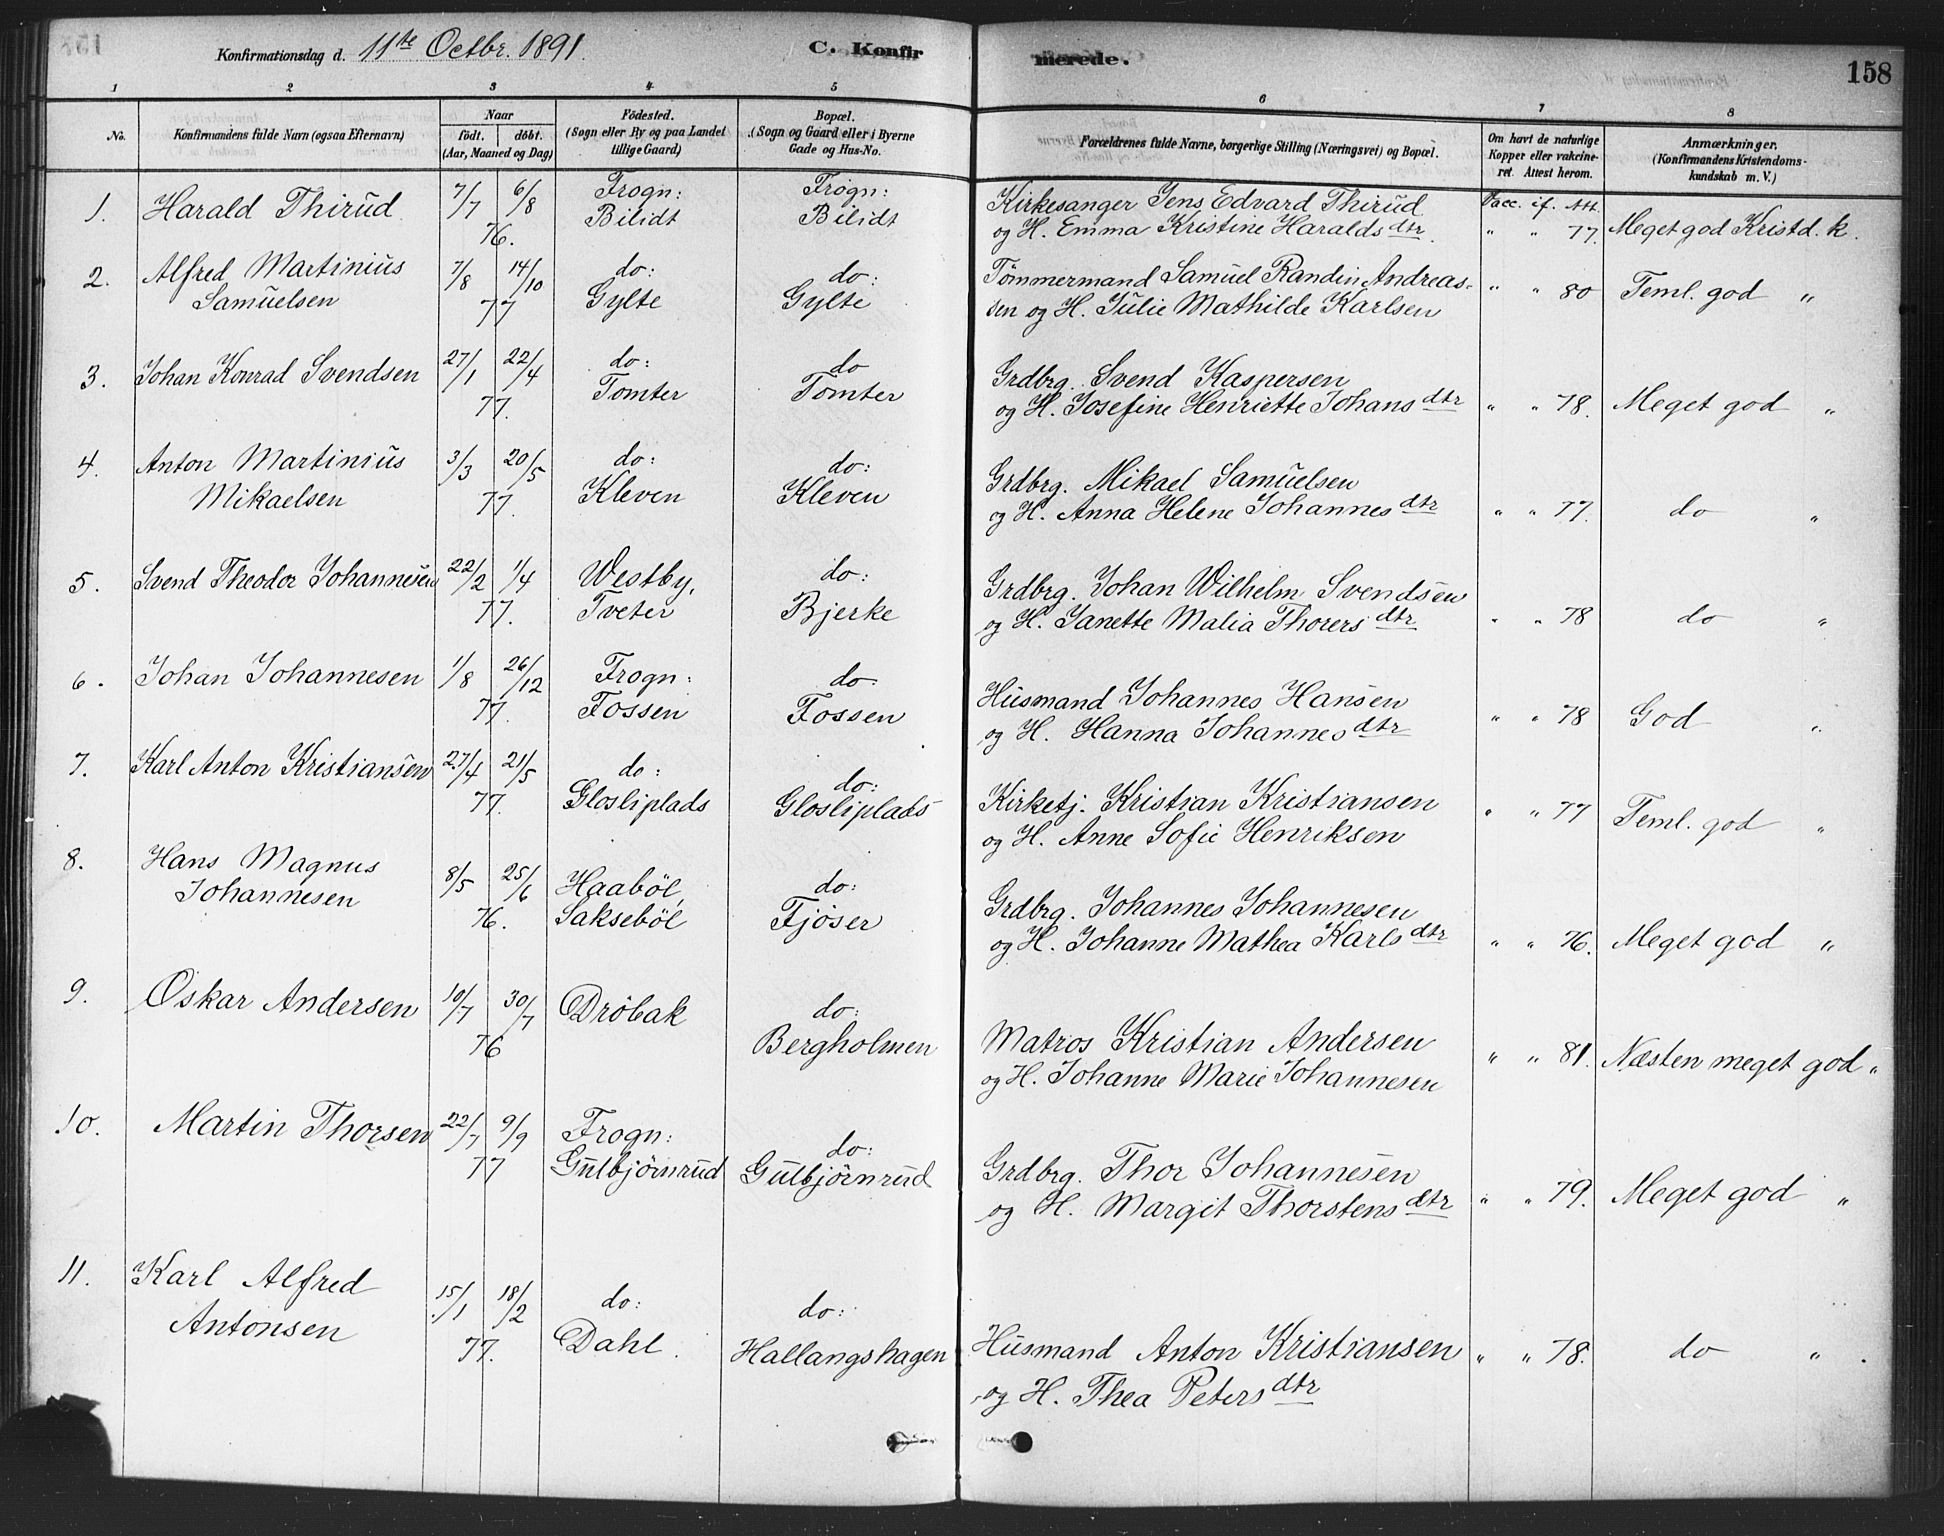 Konfirmationsdag d. 11te Octbr. 1891.
C. Konfirmerede.
158
1 2 3 4 5 6 7 8
No.
Konfirmandens fulde Navn (ogsaa Efternavn)
Naar
födt. döbt.
(Aar, Maaned og Dag)
Födested.
(Sogn eller By og paa Landet
tillige Gaard)
Bopæl.
(Sogn og Gaard eller i Byerne
Gade og Hus-No.
Forældrenes fulde Navne, borgerlige Stilling (Næringsvei) og Bopæl.
Om havt de naturlige
Kopper eller vakcine-
ret. Attest herom.
Anmærkninger.
(Konfirmandens Kristendoms-
kundskab m. V.)
1. Harald Thirud 7/7 6/8 76. Frogn: Bilidt Frogn: Bilidt
Kirkesanger Jens Edvard Thirud
og H. Emma Kristine Haraldsdtr. Vacc. if. Att. " " 77. Meget god Kristd. k.
2. Alfred Martinius
Samuelsen 7/8 14/10 77 do: Gylte do: Gylte
Tømmermand Samuel Randin Andreas-
sen og H. Julie Mathilde Karlsen " " 80 Teml. god "
3. Johan Konrad Svendsen 27/1 22/4 77. do: Tomter do Tomter
Grdbrg. Svend Kaspersen
og H. Josefine Henriette Johansdtr " " 78. Meget god "
4. Anton Martinius
Mikaelsen 3/3 20/5 77. do: Kleven do: Kleven
Grdbrg. Mikael Samuelsen
og H. Anna Helene Johannesdtr " " 77. do "
5. Svend Theodor Johannesen 22/2 1/4 77. Westby, Tveter do: Bjerke
Grdbrg. Johan Wilhelm Svendsen
og H. Janette Malia Thorersdtr " " 78 do "
6. Johan Johannesen 1/8 26/12 77. Frogn: Fossen do. Fossen
Husmand Johannes Hansen
og H. Hanna Johannesdtr " " 78 God "
7. Karl Anton Kristiansen 27/4 21/5 77. do: Glosliplads do: Glosliplads
Kirketj. Kristian Kristiansen
og H. Anne Sofie Henriksen " " 77 Teml. god "
8. Hans Magnus
Johannesen 8/5 25/6 76. Haaböl, Sakseböl do: Fjöser
Grdbrg. Johannes Johannesen
og H. Johanne Mathea Karlsdtr " " 76. Meget god "
9. Oskar Andersen 10/7 30/7 76 Dröbak do: Bergholmen
Matros Kristian Andersen
og H. Johanne Marie Johannesen " " 81. Næsten meget god "
10. Martin Thorsen 22/7 9/9 77 Frogn: Gulbjörnrud do: Gulbjörnrud
Grdbrg. Thor Johannesen
og H. Margit Thorstensdtr " " 79. Meget god "
11. Karl Alfred
Antonsen 15/1 18/2 77. do: Dahl. do: Hallangshagen
Husmand Anton Kristiansen
og H. Thea Petersdtr " " 78. do "